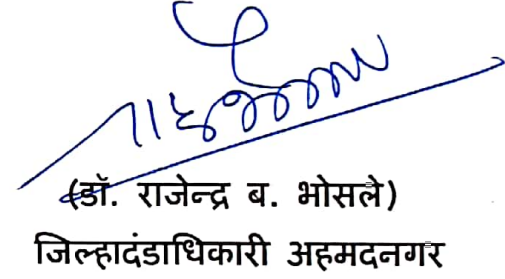 (डॉ. राजेन्द्र ब. भोसले)
जिल्हादंडाधिकारी अहमदनगर